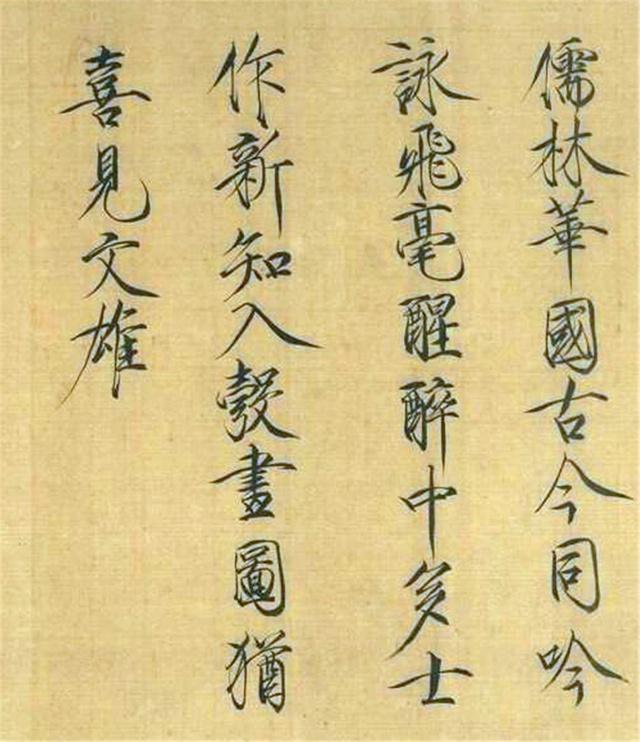 儒林華國古今同吟
詠飛毫醒醉中多士
作新知入彀畫圖猶
喜見文雄